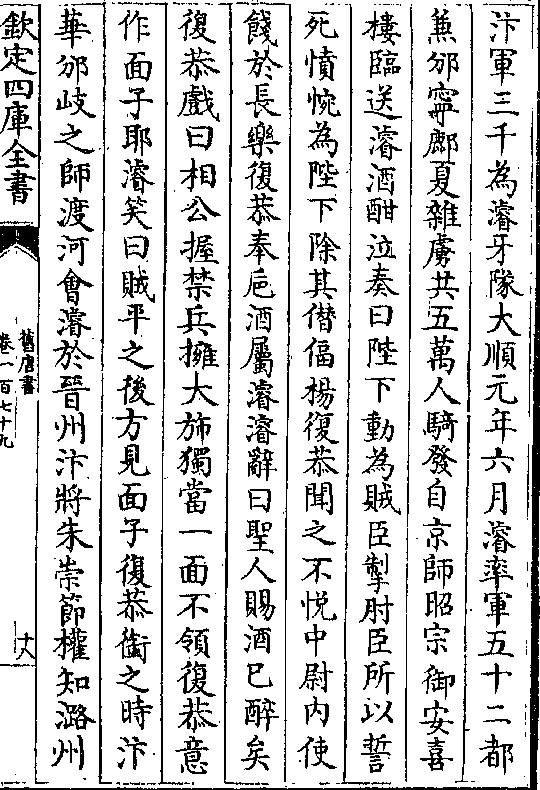 汴軍三千為濬牙隊大順元年六月濬率軍五十二都
兼邠寧鄜夏雜虜共五萬人騎發自京師昭宗御安喜
樓臨送濬酒酣泣奏曰陛下動為賊臣掣肘臣所以誓
死憤惋為陛下除其僣偪楊復恭聞之不悅中尉內使
餞於長樂復恭奉巵酒屬濬濬辭曰聖人賜酒已醉矣
復恭戲曰相公握禁兵擁大斾獨當一面不領復恭意
作面子耶濬笑曰賊平之後方見面子復恭銜之時汴
華邠岐之師渡河會濬於晉州汴將朱崇節權知潞州
欽定四庫全書
舊唐書
卷一百七十九
十八